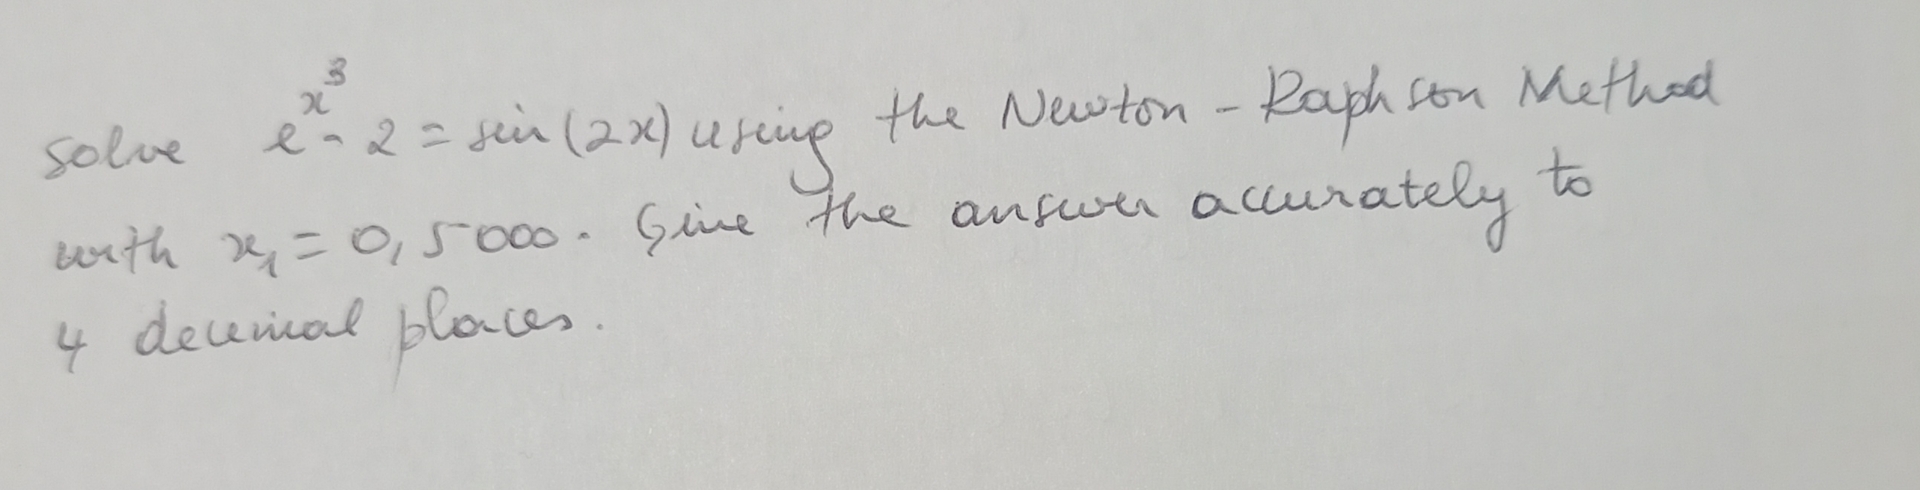 solve e^{x^3} - 2 = sin(2x) using the Newton - Raphson Method
with x₁ = 0,5000. Give the answer accurately to
4 decimal places.